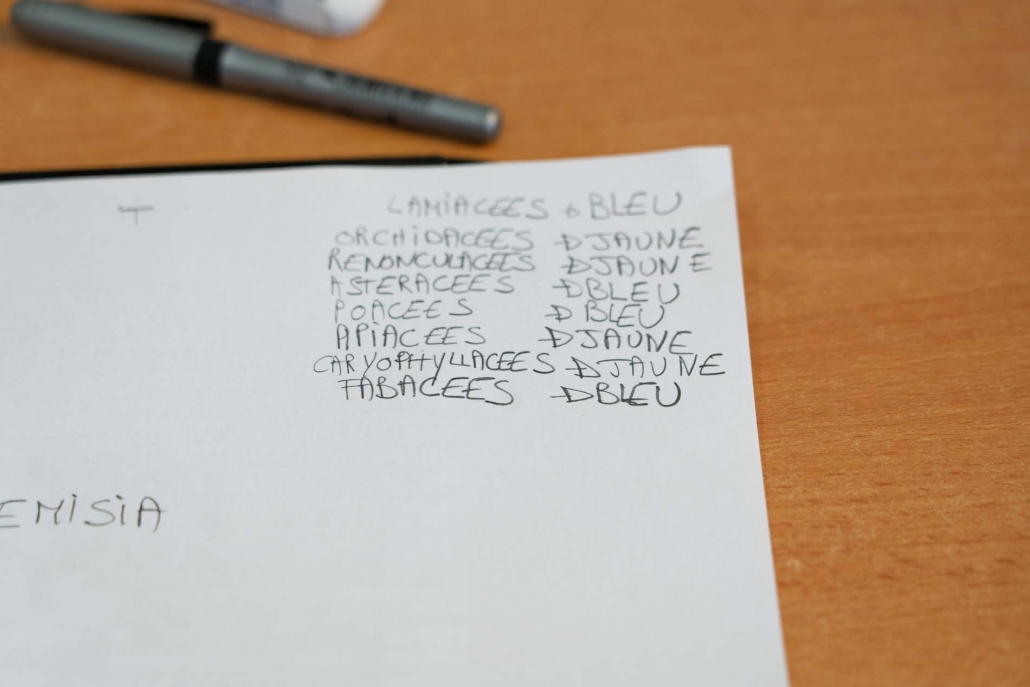 T
LAMIACEES → BLEU
ORCHIDACEES → JAUNE
RENONCULACEES → JAUNE
ASTERACEES → BLEU
POACEES → BLEU
APIACEES → JAUNE
CARYOPHYLLACEES → JAUNE
FABACEES → BLEU
EMISIA